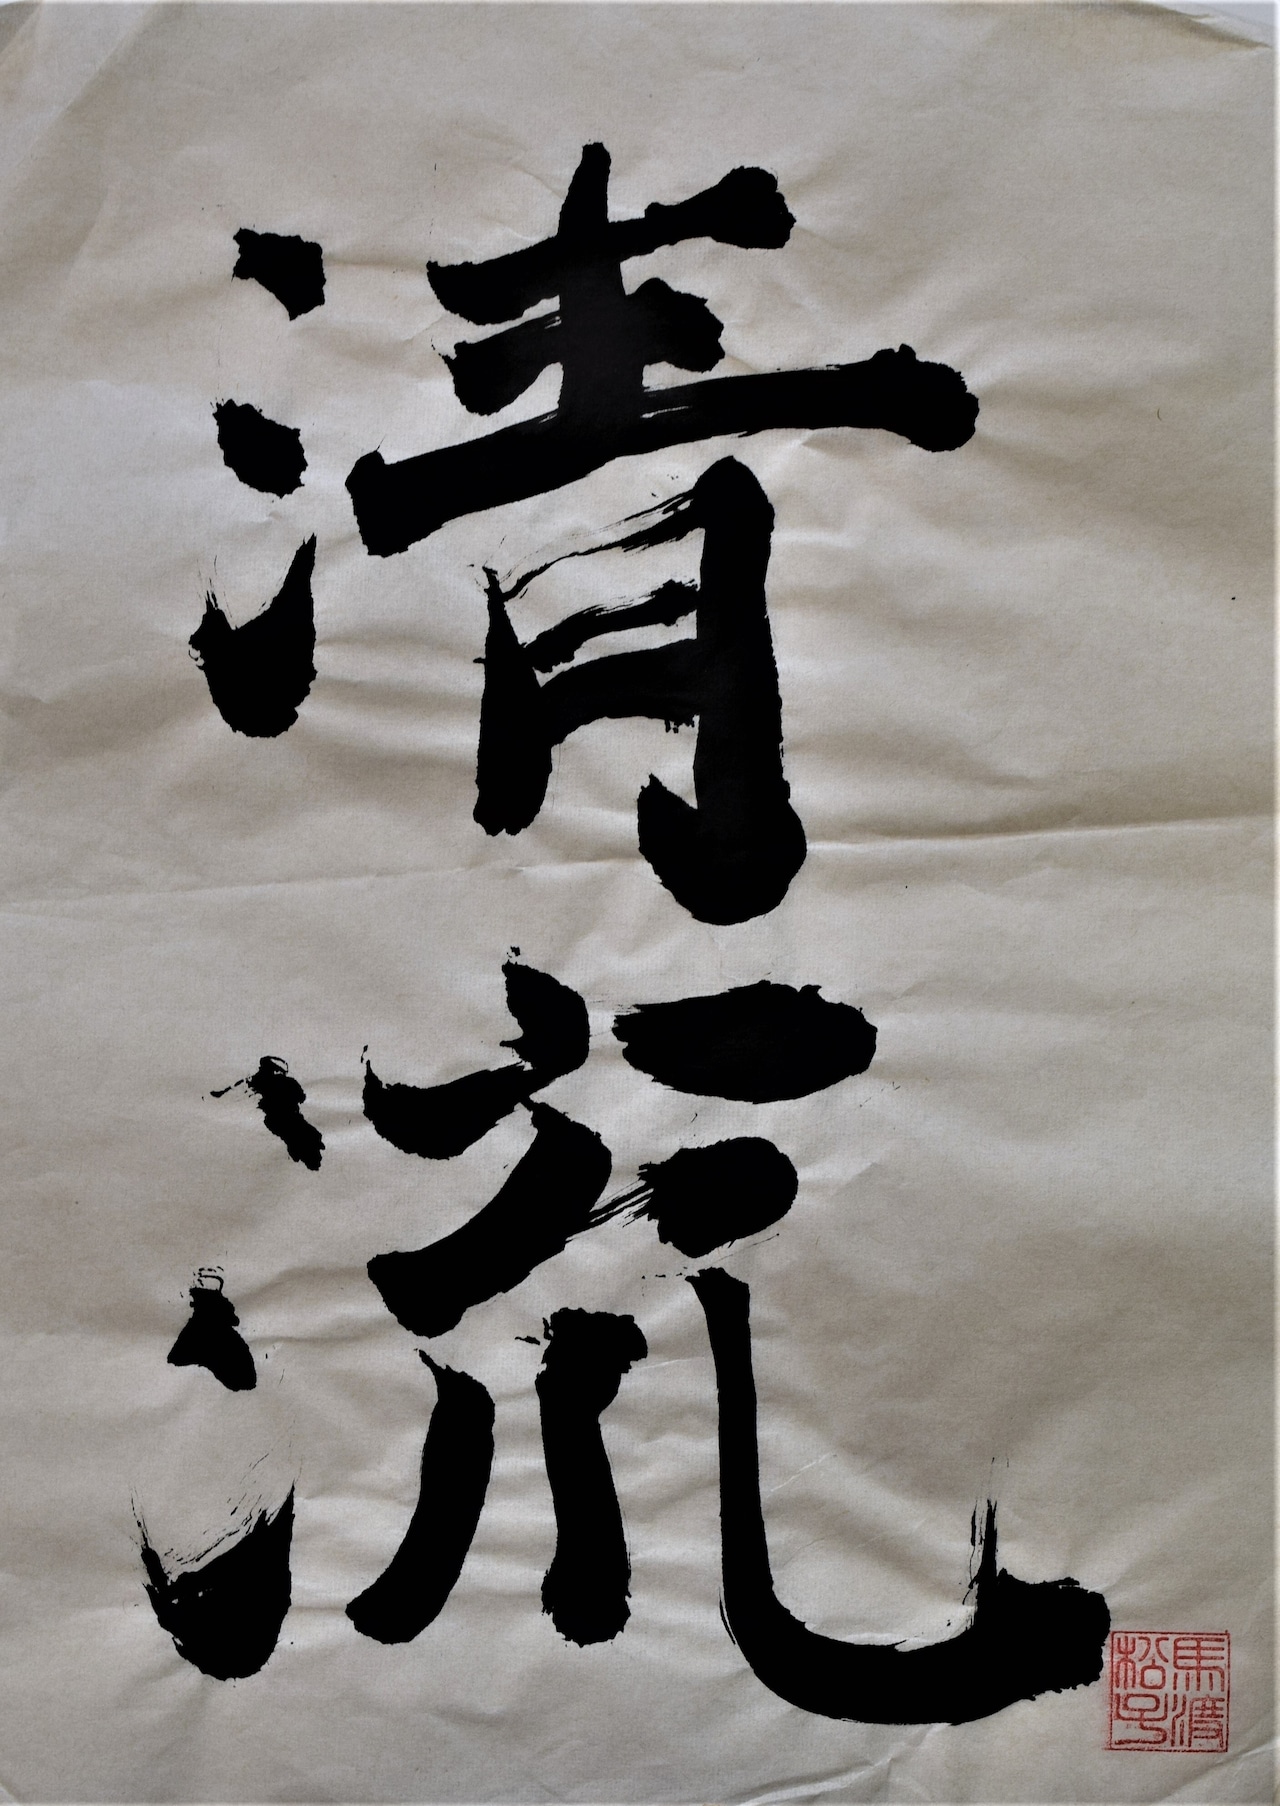 清流
馬渡
松号